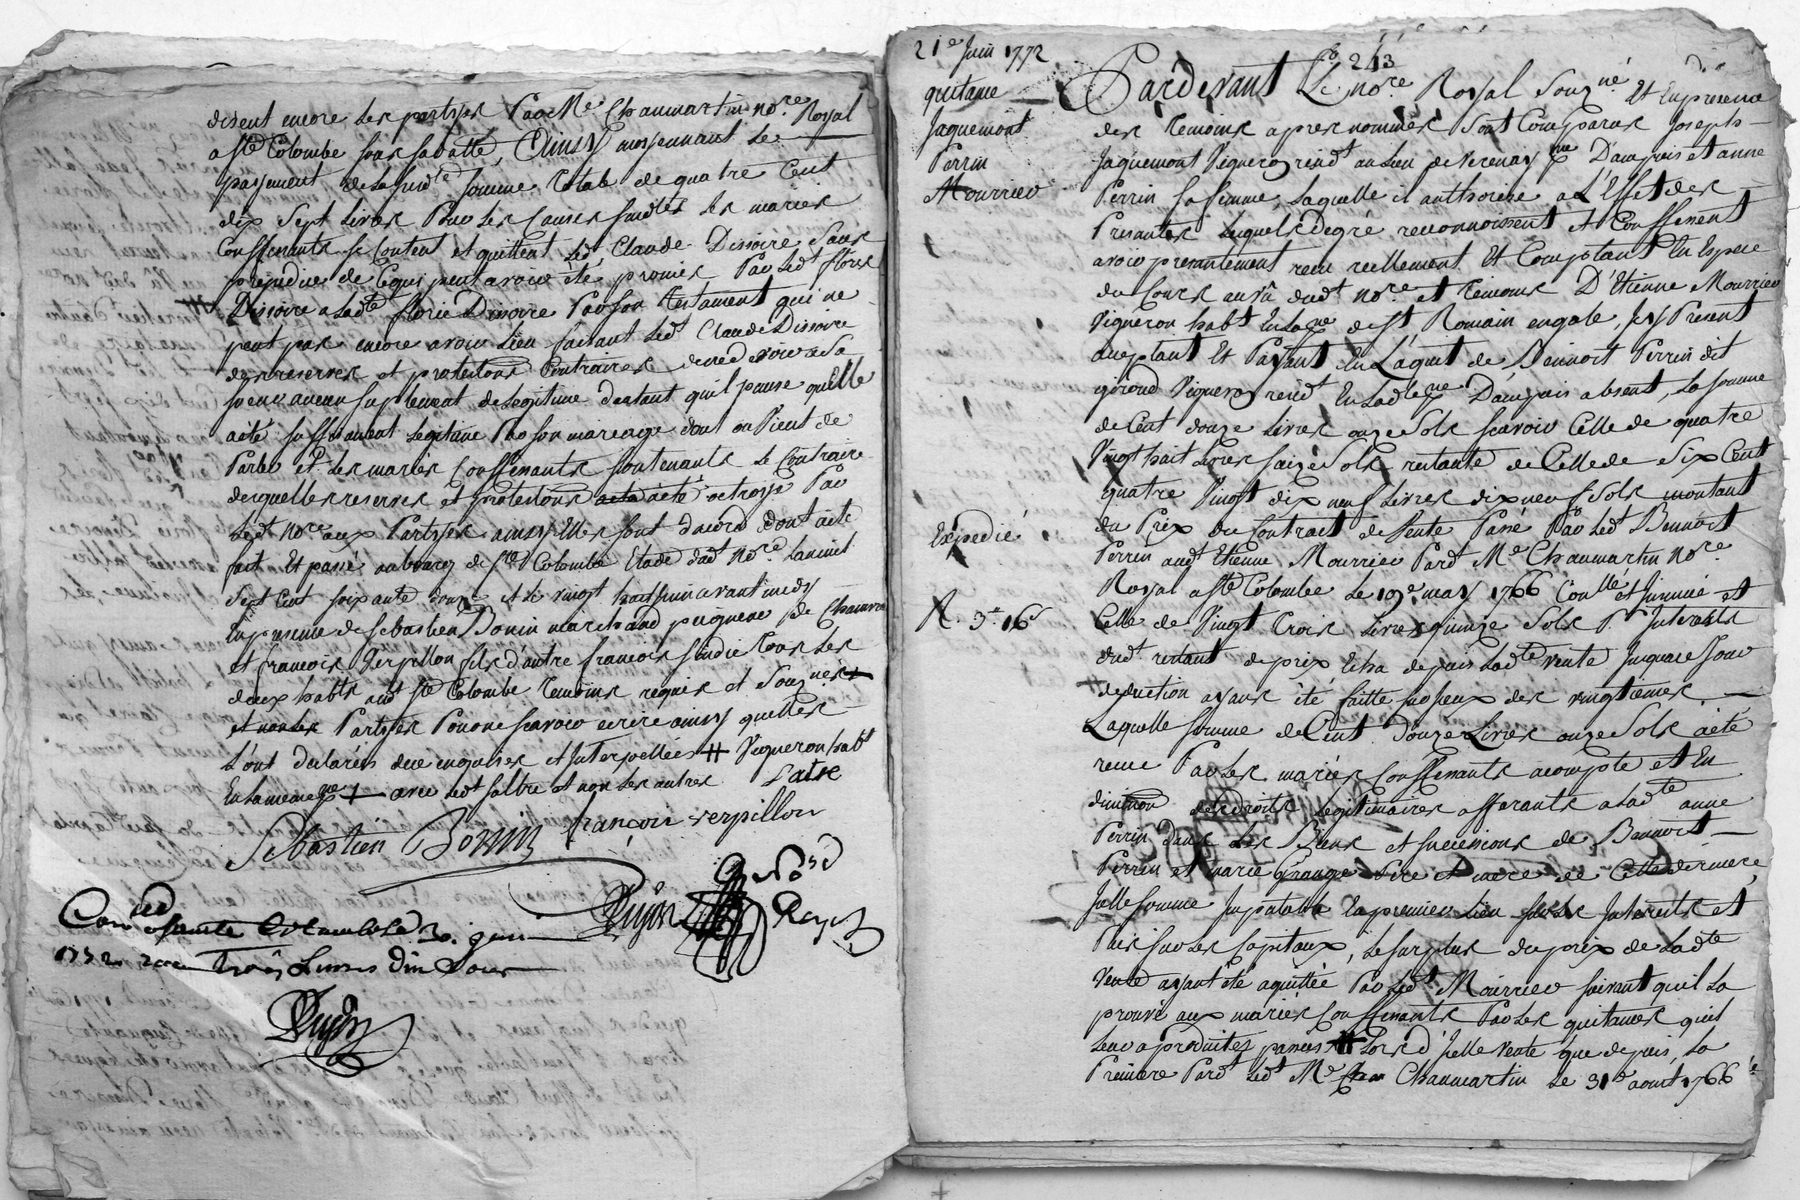 disent encore les partyes Par Me Chaumartin nore Royal
a Ste Colombe sous sa datte, Ainsy moyennant le
payement de la susdte somme totale de quatre Cent
dix Sept Livres Pour les Causes susdtes les mariés
Conffenants se Content et quittent ledt Claude Dissoire Sans
prejudice de Cequi peut avoir été promis Par ledt floris
Dissoire a ladte florie Dissoire Par son testament qui ne
peut pas encore avoir Lieu faisant ledt Claude Dissoire
des reserves et protestons Contraires de ne devoir a Sa
soeur aucun suplement de legitime dautant quil pause quelle
a été suffisament legitimé Par son mariage dont on Vient de
Parler et les mariés Conffenants soutenants le Contraire
desquelles reserves et protestons acte a été octroyé Par
ledt Nore aux Partyes ainsy Elles sont d'acord dont acte
fait Et passé au bourg de Ste Colombe Etude dudt Nore Lan mil
Sept Cent soixante douze et le vingt huit juin avant midy
En presence de Sebastien Bonin marchand peigneur de Chanvre
et francois Verpillon fils d'autre francois sindic tous les
deux habts audt Ste Colombe temoins requis et Sousgnés
et non les Partyes Pour ne scavoir ecrire ainsy quelles
L'ont declarées due enquises et Interpellées # Vigneron habt
En la meme pse + avec ledt salbre et non les autres L'acte
Sebastien Bonin françois verpillon
Dujon Nore Royal
Conlled a sainte Colombe le 30 juin
1772 recu Trois Livres dix sous
Dujon
21e Juin 1772
quitance
Jaquemont
Perrin
Mourrier
Expedié
R. 3# 16s
243
Pardevant Le nore Royal Sousgné Et En presence
des temoins apres nommés Sont Comparus Joseph
Jaquemont Vigneron resdt au Lieu de Verenay pse D'ampuis et anne
Perrin sa femme, Laquelle il authorise a L'Effet des
Presantes lesquels de gré reconnoissent et Conffessent
avoir presantement recu reellement Et Comptant En Espece
du Cours au vû dudt Nore et temoins D'Etienne Mourrier
Vigneron habt En la pse de St Romain en gale, Icy Present
aceptant Et Payant En L'aquit de Benoist Perrin dit
giroud Vigneron resdt En ladte pse D'ampuis absent, La somme
de Cent douze Livres onze Sols scavoir Celle de quatre
Vingt huit Livres seize Sols restante de Celle de Six Cent
quatre Vingt dix neuf Livres dix neuf Sols montant
du Prix du Contract de Vente Passé Par ledt Benoist
Perrin audt Etienne Mourrier Pardt Me Chaumartin Nore
Royal a Ste Colombe Le 19e may 1766 Conllé et Insinué et
Celle de Vingt trois Livres quinze Sols Pr Interests
dudt restant de prix Echu depuis ladte vente Jusqua ce Jour
deduction ayant été faitte sur Iceux des vingtiemes
Laquelle somme de Cent Douze Livres onze Sols a été
recue Par les mariés Conffenants acompte et En
diminution des droits Legitimaires afferants a ladte anne
Perrin dans les Biens et successions de Bennoist
Perrin et marie grange Pere et mere de Cette derniere,
Jelle somme Imputable En premier Lieu sur les Interets et
Puis sur les Capitaux, le surplus du prix de ladte
Vente ayant été aquittée Par ledt Mourrier suivant quil La
prouvé aux mariés Conffenants Par les quitances quil
Leur a produites passées # Lors d'Jelle vente que depuis, La
Premiere Pardt ledt Me Chaumartin Le 31e aoust 1766